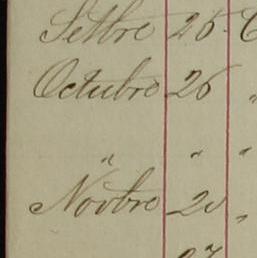 Setbre 26
Octubre 26 "
" " "
Novbre 20 "
27